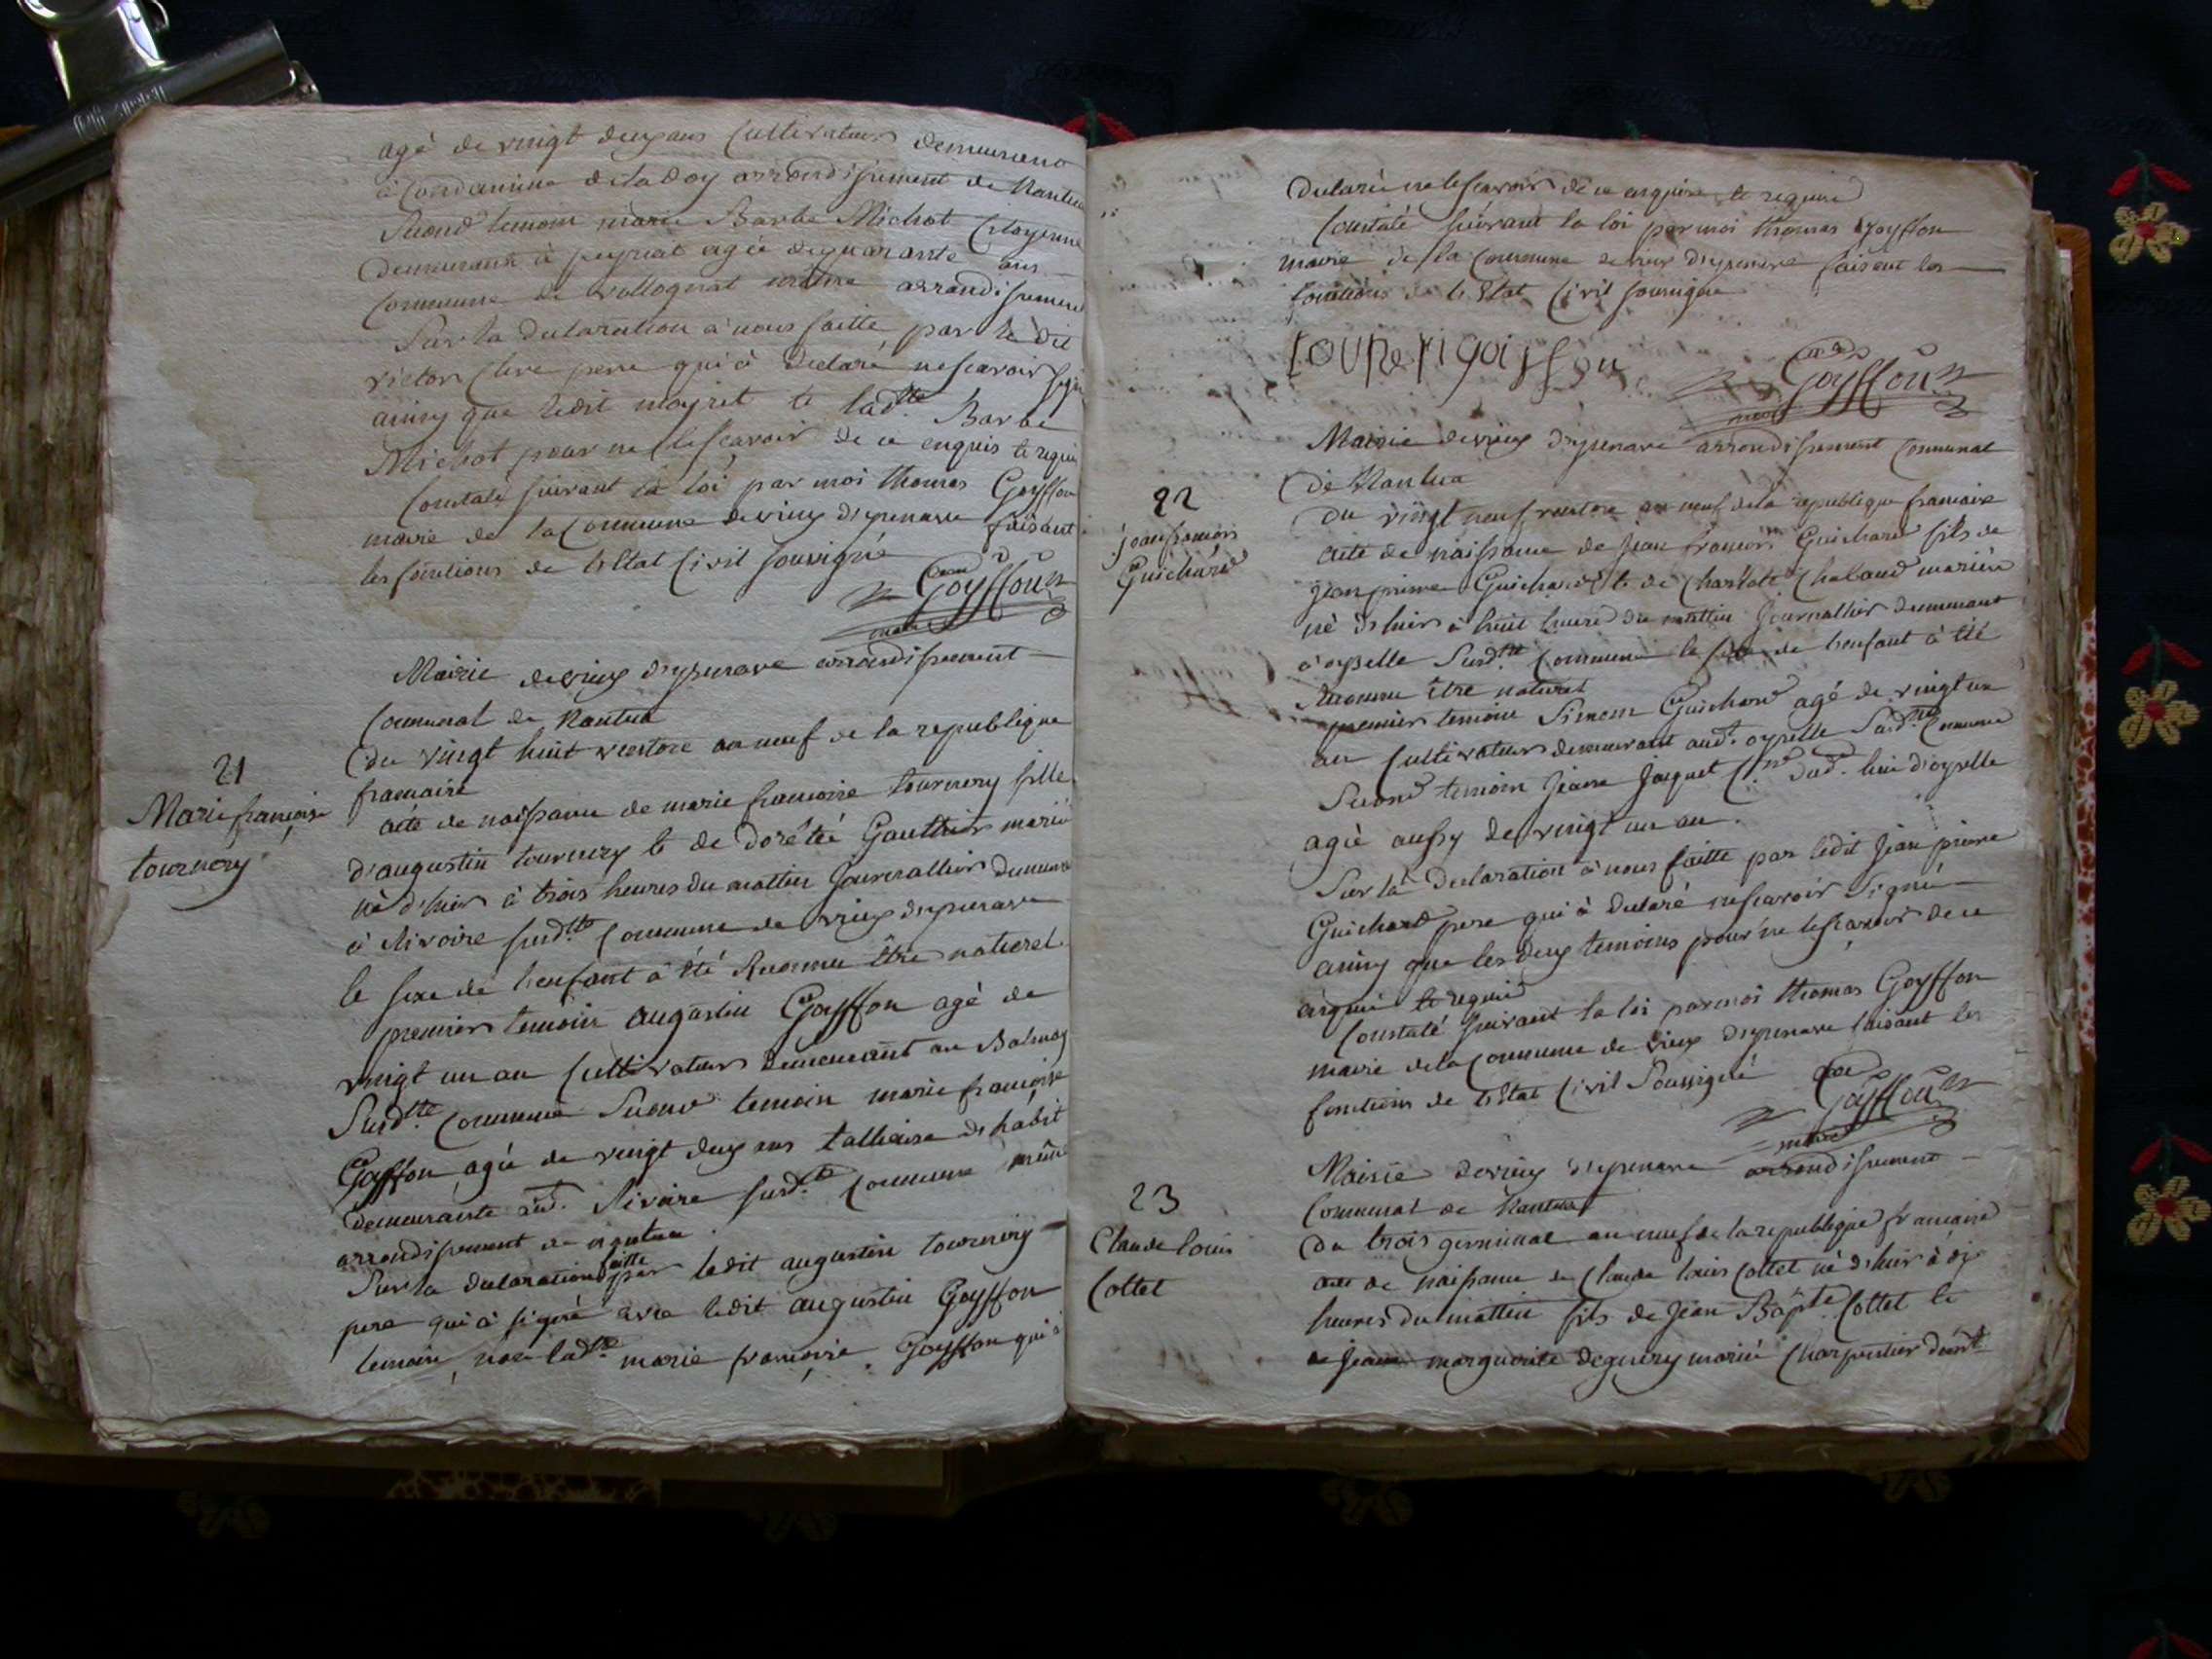 agé de vingt deux ans Cultivateur demeurant
à Condamine de la doy arrondissement de Nantua
Second temoin marie Barbe Michot Citoyenne
demeurant à peyriat agée de quarante ans
Commune de vollognat même arrondissement
Sur la declaration à nous faitte par le dit
victor pere qui à declaré ne scavoir signé
ainsy que ledit mayret et ladtte Barbe
Michot pour ne le scavoir de ce enquis et requis
Constaté suivant la loi par moi thomas Goyffon
maire de la Commune de vieux d'yzenave faisant
les fonctions de l'Etat Civil soussigné
Goyffon
maire
Mairie de vieux d'yzenave arrondissement
Communal de Nantua
Du vingt huit ventose an neuf de la republique
francaise
21
Marie françoise
tournery
acte de naissance de marie francoise tournery fille
d'augustin tournery et de dorétée Gauthier mariés
né d'hier à trois heures du mattin Journallier demeurant
à Sivoire susdtte Commune de vieux d'yzenave
le sexe de l'enfant à été Reconnu être naturel
premier temoin augustin Goyffon agé de
vingt un an Cultivateur demeurant au Balmay
Susdtte Commune Second temoin marie françoise
Goyffon agée de vingt deux ans tallieuse d'habit
demeurante aud. Sivoire susdtte Commune même
arrondissement de nantua
Sur la declaration faitte par ledit augustin tournery
pere qui à signé avec ledit augustin Goyffon
temoin, non ladtte marie francoise Goyffon qui à
declaré ne le scavoir de ce enquise et requise
Constaté suivant la loi par moi thomas Goyffon
maire de la Commune de vieux d'yzenave faisant les
fonctions de l'Etat Civil soussigné
Goyffon
maire
Mairie de vieux d'yzenave arrondissement Communal
de Nantua
22
jean francois
Guichard
Du vingt neuf ventose an neuf de la republique francaise
acte de naissance de Jean francois Guichard fils de
Jean pierre Guichard et de Charlote Chaland mariés
né d'hier à huit heures du mattin Journallier demeurant
à oyselle Susdtte Commune le sexe de l'enfant à été
Reconnu être naturel
premier temoin Simon Guichard agé de vingt un
an Cultivateur demeurant aud. oyselle Susdtte Commune
Second temoin Jeanne Jaquet dud. lieu d'oyselle
agée aussy de vingt un an.
Sur la declaration à nous faitte par ledit Jean pierre
Guichard pere qui à declaré ne scavoir Signé
ainsy que les deux temoins pour ne le scavoir de ce
enquis et requis
Constaté suivant la loi par moi thomas Goyffon
maire de la Commune de vieux d'yzenave faisant les
fonctions de l'Etat Civil Soussigné
Goyffon
maire
Mairie de vieux d'yzenave arrondissement
Communal de Nantua
23
Claude louis
Cottet
Du trois germinal an neuf de la republique francaise
acte de naissance de Claude louis Cottet né d'hier à dix
heures du mattin fils de Jean Bapte Cottet et
de Jeanne marguerite deguery mariés Charpentier